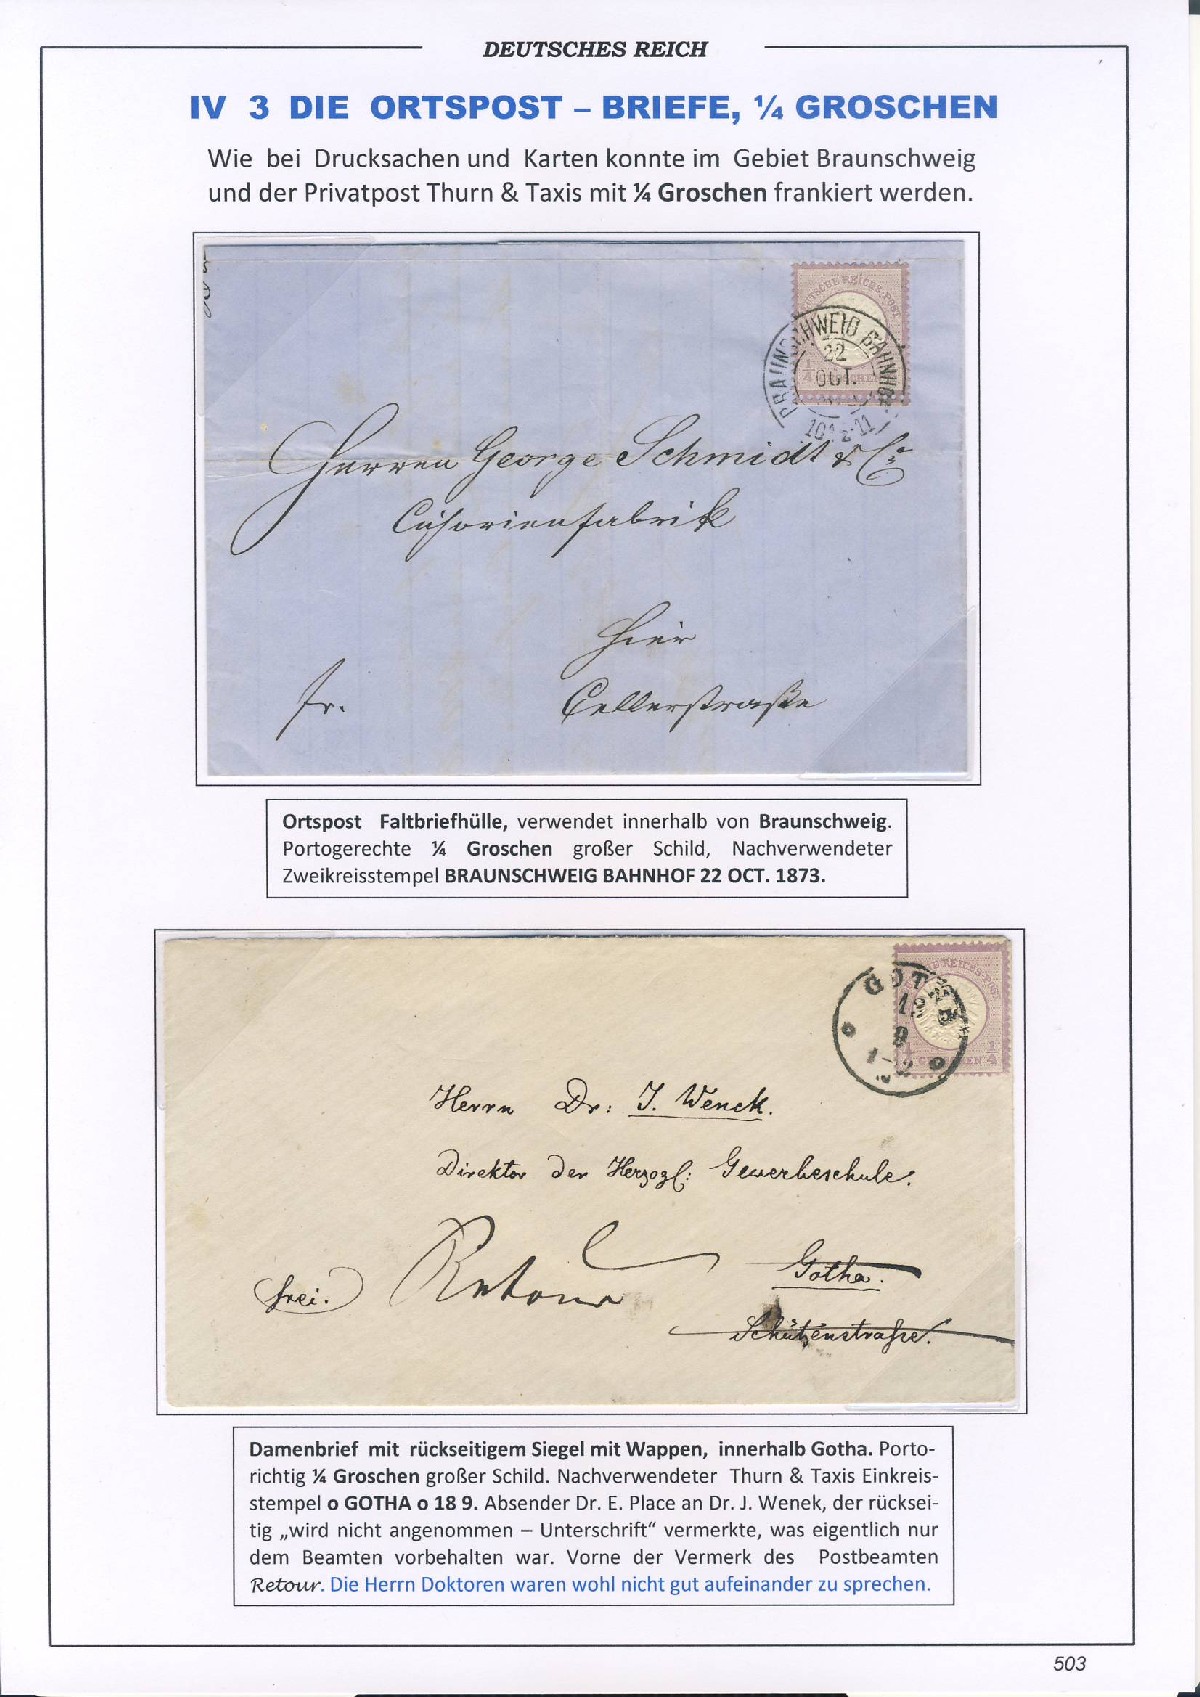 DEUTSCHES REICH
IV 3 DIE ORTSPOST – BRIEFE, ¼ GROSCHEN
Wie bei Drucksachen und Karten konnte im Gebiet Braunschweig
und der Privatpost Thurn & Taxis mit ¼ Groschen frankiert werden.
BRAUNSCHWEIG BAHNHOF
22
OCT.
Herren George Schmidt & Co
Cichorienfabrik
Hier
fr.
Cellerstraße
Ortspost Faltbriefhülle, verwendet innerhalb von Braunschweig.
Portogerechte ¼ Groschen großer Schild, Nachverwendeter
Zweikreisstempel BRAUNSCHWEIG BAHNHOF 22 OCT. 1873.
Herrn Dr: J. Wenck.
Direktor der Herzogl: Gewerbeschule.
Retour
Gotha.
frei.
Schützenstraße.
Damenbrief mit rückseitigem Siegel mit Wappen, innerhalb Gotha. Porto-
richtig ¼ Groschen großer Schild. Nachverwendeter Thurn & Taxis Einkreis-
stempel o GOTHA o 18 9. Absender Dr. E. Place an Dr. J. Wenek, der rücksei-
tig „wird nicht angenommen – Unterschrift“ vermerkte, was eigentlich nur
dem Beamten vorbehalten war. Vorne der Vermerk des Postbeamten
Retour. Die Herrn Doktoren waren wohl nicht gut aufeinander zu sprechen.
503